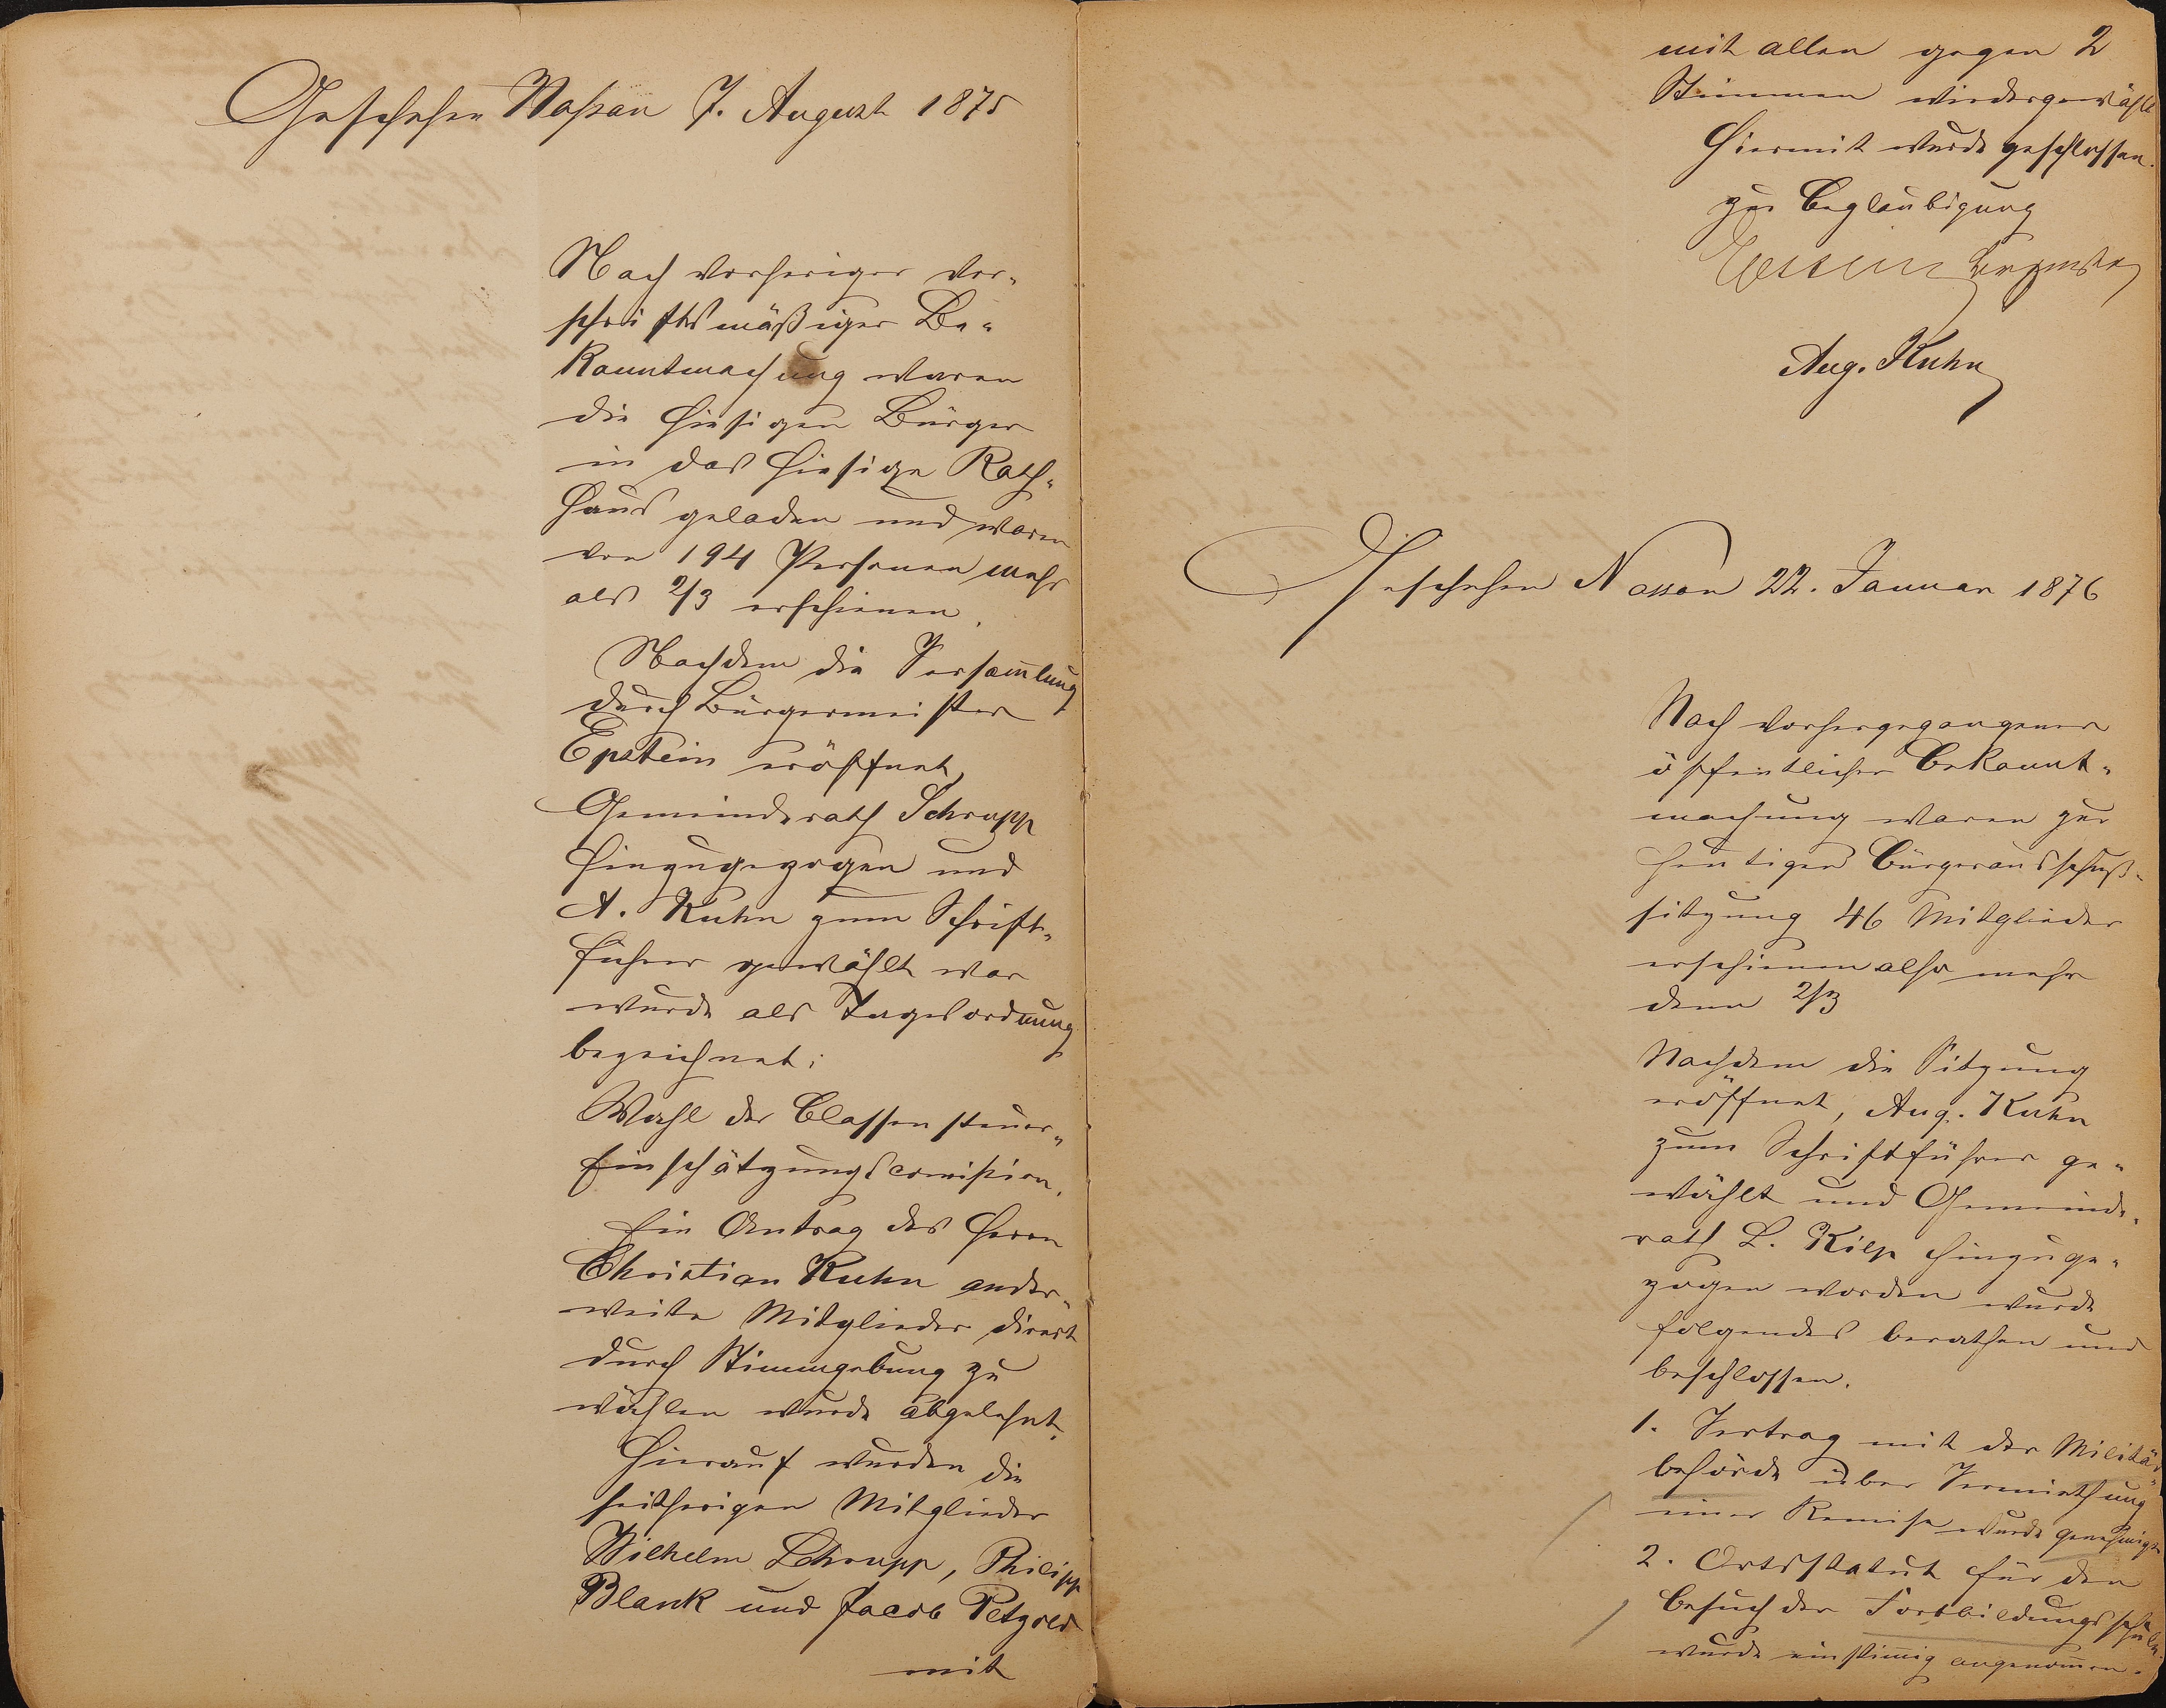 Geschehen Naßau 7. August 1875
Nach vorheriger vor-
schriftsmäßiger Be-
kanntmachung waren
die hiesigen Bürger
in das hiesige Rath-
haus geladen und waren
von 194 Personen mehr
als 2/3 erschienen.
Nachdem die Versam̅lung
durch Bürgermeister
Epstein eröffnet,
Gemeinderath Schrupp
hinzugezogen und
A. Kuhn zum Schrift-
führer gewählt war
wurde als Tagesordnung
bezeichnet:
Wahl der Classensteuer-
Einschätzungscom̅ission.
Ein Antrag des Herrn
Christian Kuhn ander-
weite Mitglieder direct
durch Stimmgebung zu
wählen wurde abgelehnt.
Hierauf wurden die
seitherigen Mitglieder
Wilhelm Schrupp, Philipp
Blank und Jacob Petzold
mit
mit allen gegen 2
Stimmen wiedergewählt
Hiermit wurde geschlossen.
zur Beglaubigung
Epstein Bürgmstr
Aug. Kuhn
Geschehen Nassau 22. Januar 1876
Nach vorhergegangener
öffentlicher Bekannt-
machung waren zur
heutigen Bürgerausschuß-
sitzung 46 Mitglieder
erschienen also mehr
denn 2/3
Nachdem die Sitzung
eröffnet, Aug. Kuhn
zum Schriftführer ge-
wählt und Gemeinde-
rath L. Kilp hinzuge-
zogen worden wurde
folgendes berathen und
beschlossen.
1. Vertrag mit der Militär-
behörde über Vermiethung
einer Remise wurde genehmigt
2. Ortsstatut für den
Besuch der Fortbildungsschule
wurde einstim̅ig angenom̅en.